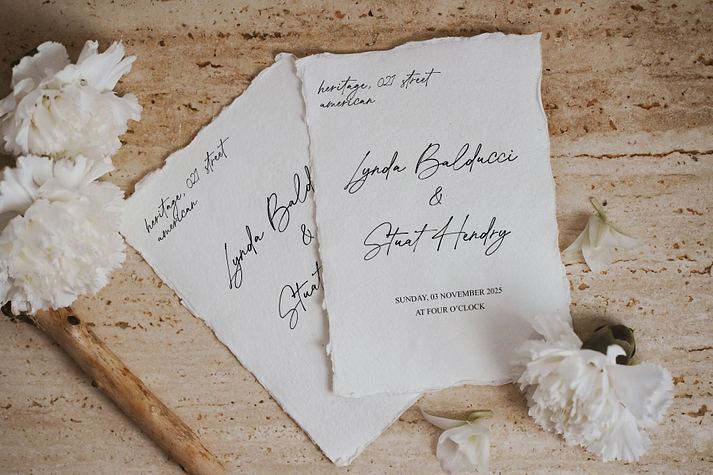 heritage, 021 street
american
Lynda Bald
&
Stuat
heritage, 021 street
american
Lynda Balducci
&
Stuat Hendry
SUNDAY, 03 NOVEMBER 2025
AT FOUR O'CLOCK